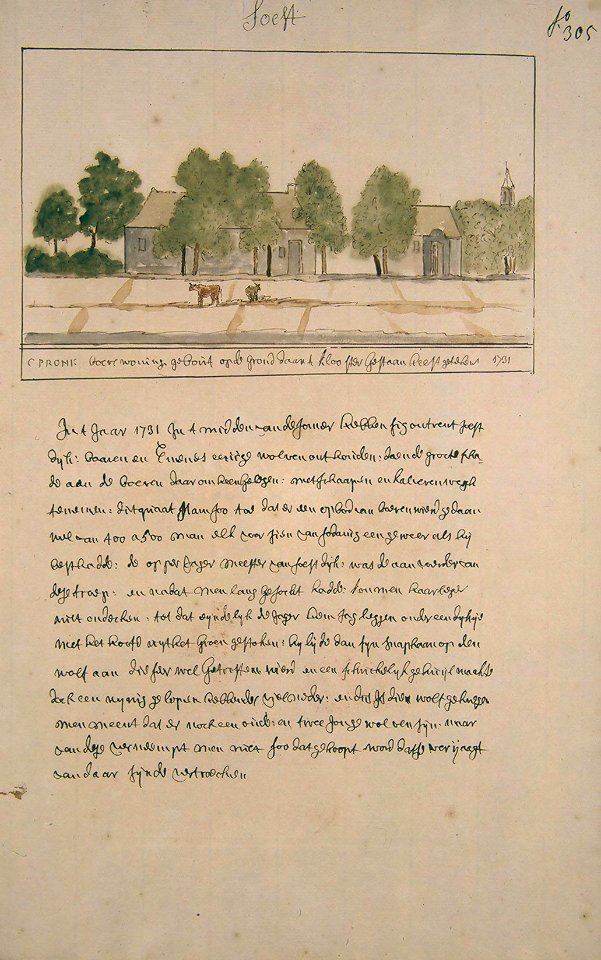 Soest
fo 305
C PRONK boere woning gebout op de grond daar t klooster gestaan heeft getekent 1731
Int Jaar 1731 In t midden van de somer hebben sig ontrent soest
dijk: baaren en Emenes eenige wolven onthouden: daen de groote scha
de aan de boeren daar omheen gelegen: met schaapen en kalveren wegh
te nemen: dit quaat nam soo toe dat er een opbod van boeren wierd gedaan
wel van 400 a 500 man elk voorsien van sodanig een geweer als hij
best hadde: de opper Jager meester van soestdijk: was de aanvoerder van
dese troep: en nadat men lang gesocht hadde: kon men haar leger
niet ondecken: tot dat eyndelyk de Jager hem sag leggen onder een dykje
met het hooft uyt het groen gestoken: hy lyde dan syn snaphaan op den
wolf aan die seer wel getroffen wierd en een schrickelyk gehuijl maakte
doch een wynig gelopen hebbende viel neder: en dus is dien wolf gekregen
men meent dat er noch een oude: en twee Jonge wolven syn: maar
van dese verneempt men niet soo dat gehoopt word datse verjaagt
van daar synde vertrocken